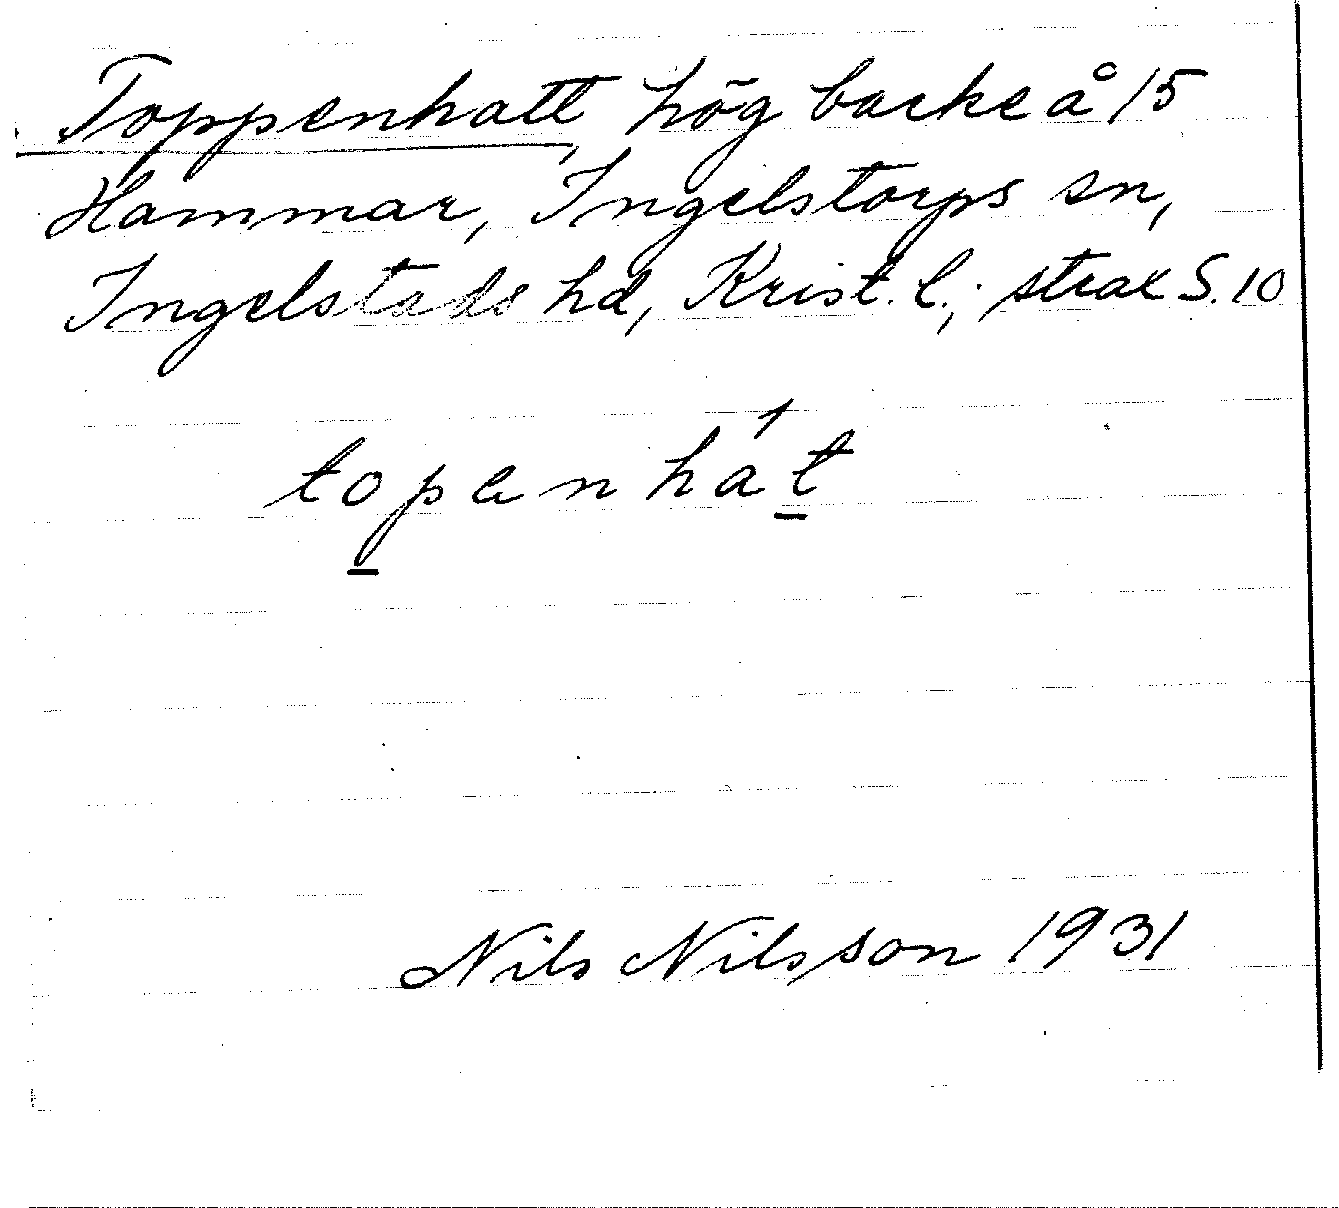 Toppenhatt, hög backe å 15
Hammar, Ingelstorps sn,
Ingelstads hd, Krist. l.; strax S. 10
topenhát
Nils Nilsson 1931